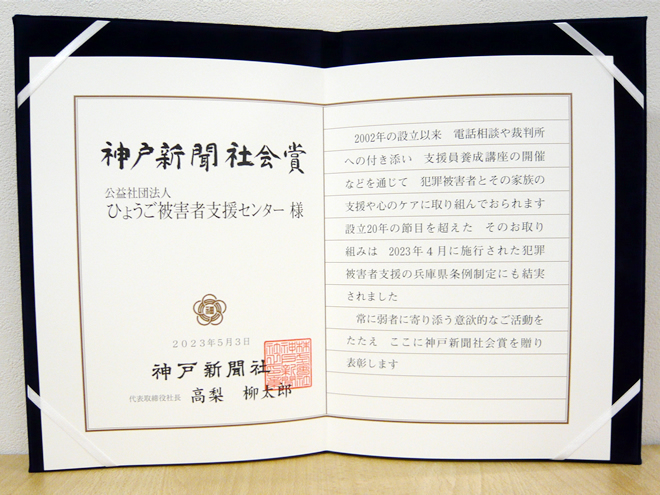 神戸新聞社会賞
公益社団法人
ひょうご被害者支援センター 様
2023年5月3日
神戸新聞社
代表取締役社長 高梨 柳太郎
2002年の設立以来 電話相談や裁判所
への付き添い 支援員養成講座の開催
などを通じて 犯罪被害者とその家族の
支援や心のケアに取り組んでおられます
設立20年の節目を超えた そのお取り
組みは 2023年4月に施行された犯罪
被害者支援の兵庫県条例制定にも結実
されました
常に弱者に寄り添う意欲的なご活動を
たたえ ここに神戸新聞社会賞を贈り
表彰します